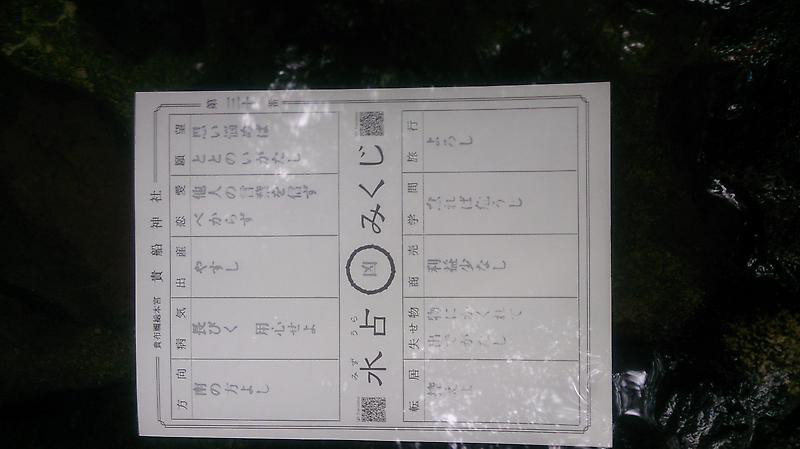 貴布禰総本宮 貴船神社
第三十番
願望
思い悩めば
ととのいがたし
恋愛
他人の言葉を信ず
べからず
出産
やすし
病気
長びく 用心せよ
方向
南の方よし
みず うら
水占みくじ
凶
旅行
よろし
学問
商売
利益少なし
失せ物
物にかくれて
出でがたし
転居
控えよ